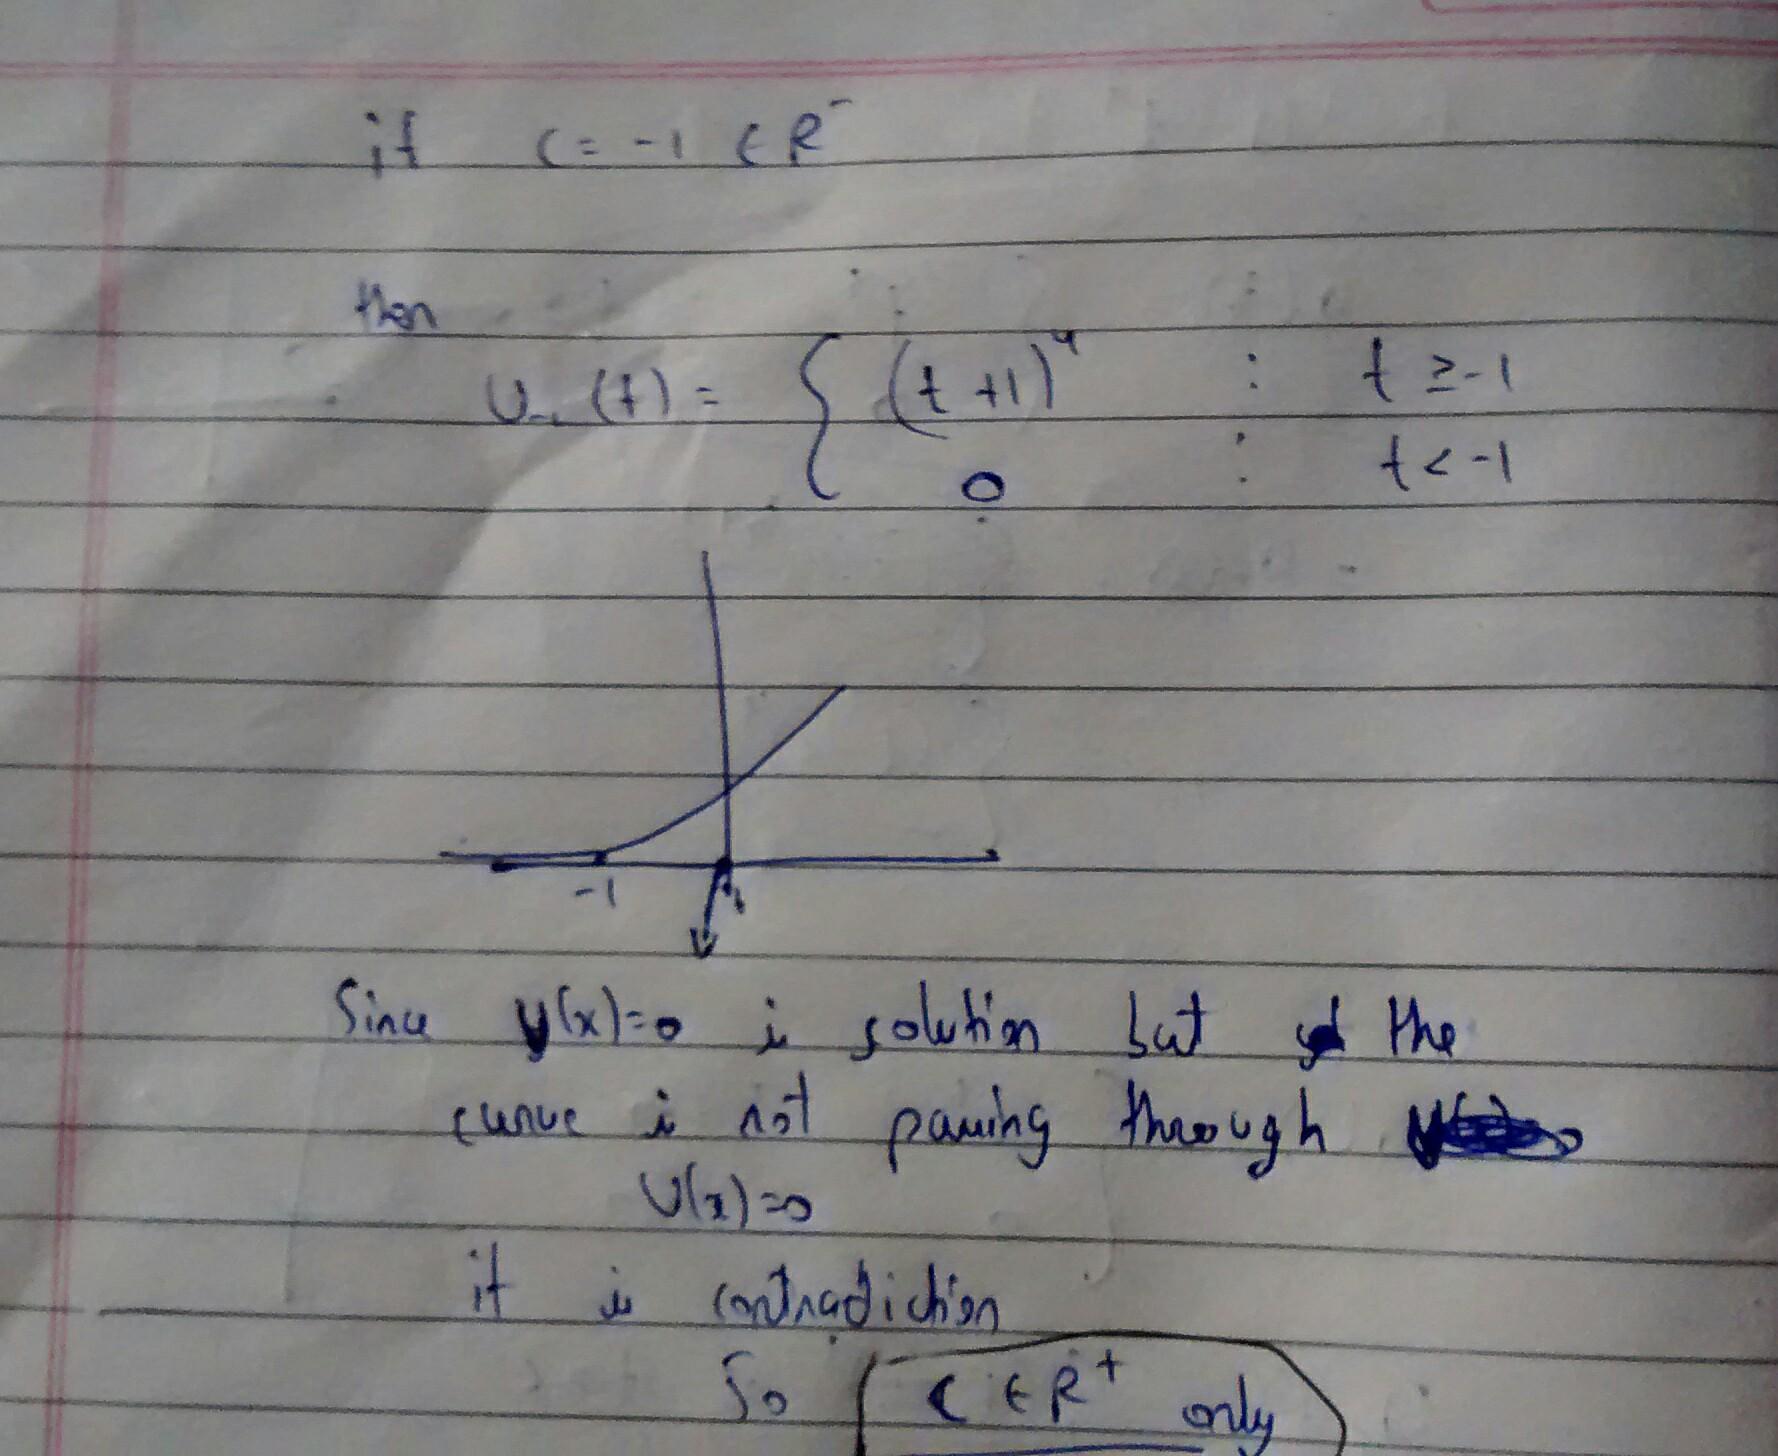 if c = -1 ∈ R⁻
then
U₋₁(t) = { (t+1)⁴ : t ≥ -1
0 : t < -1
-1
Since y(x)=0 is solution but the
curve is not passing through
U(x)=0
it is contradiction
So C ∈ R⁺ only